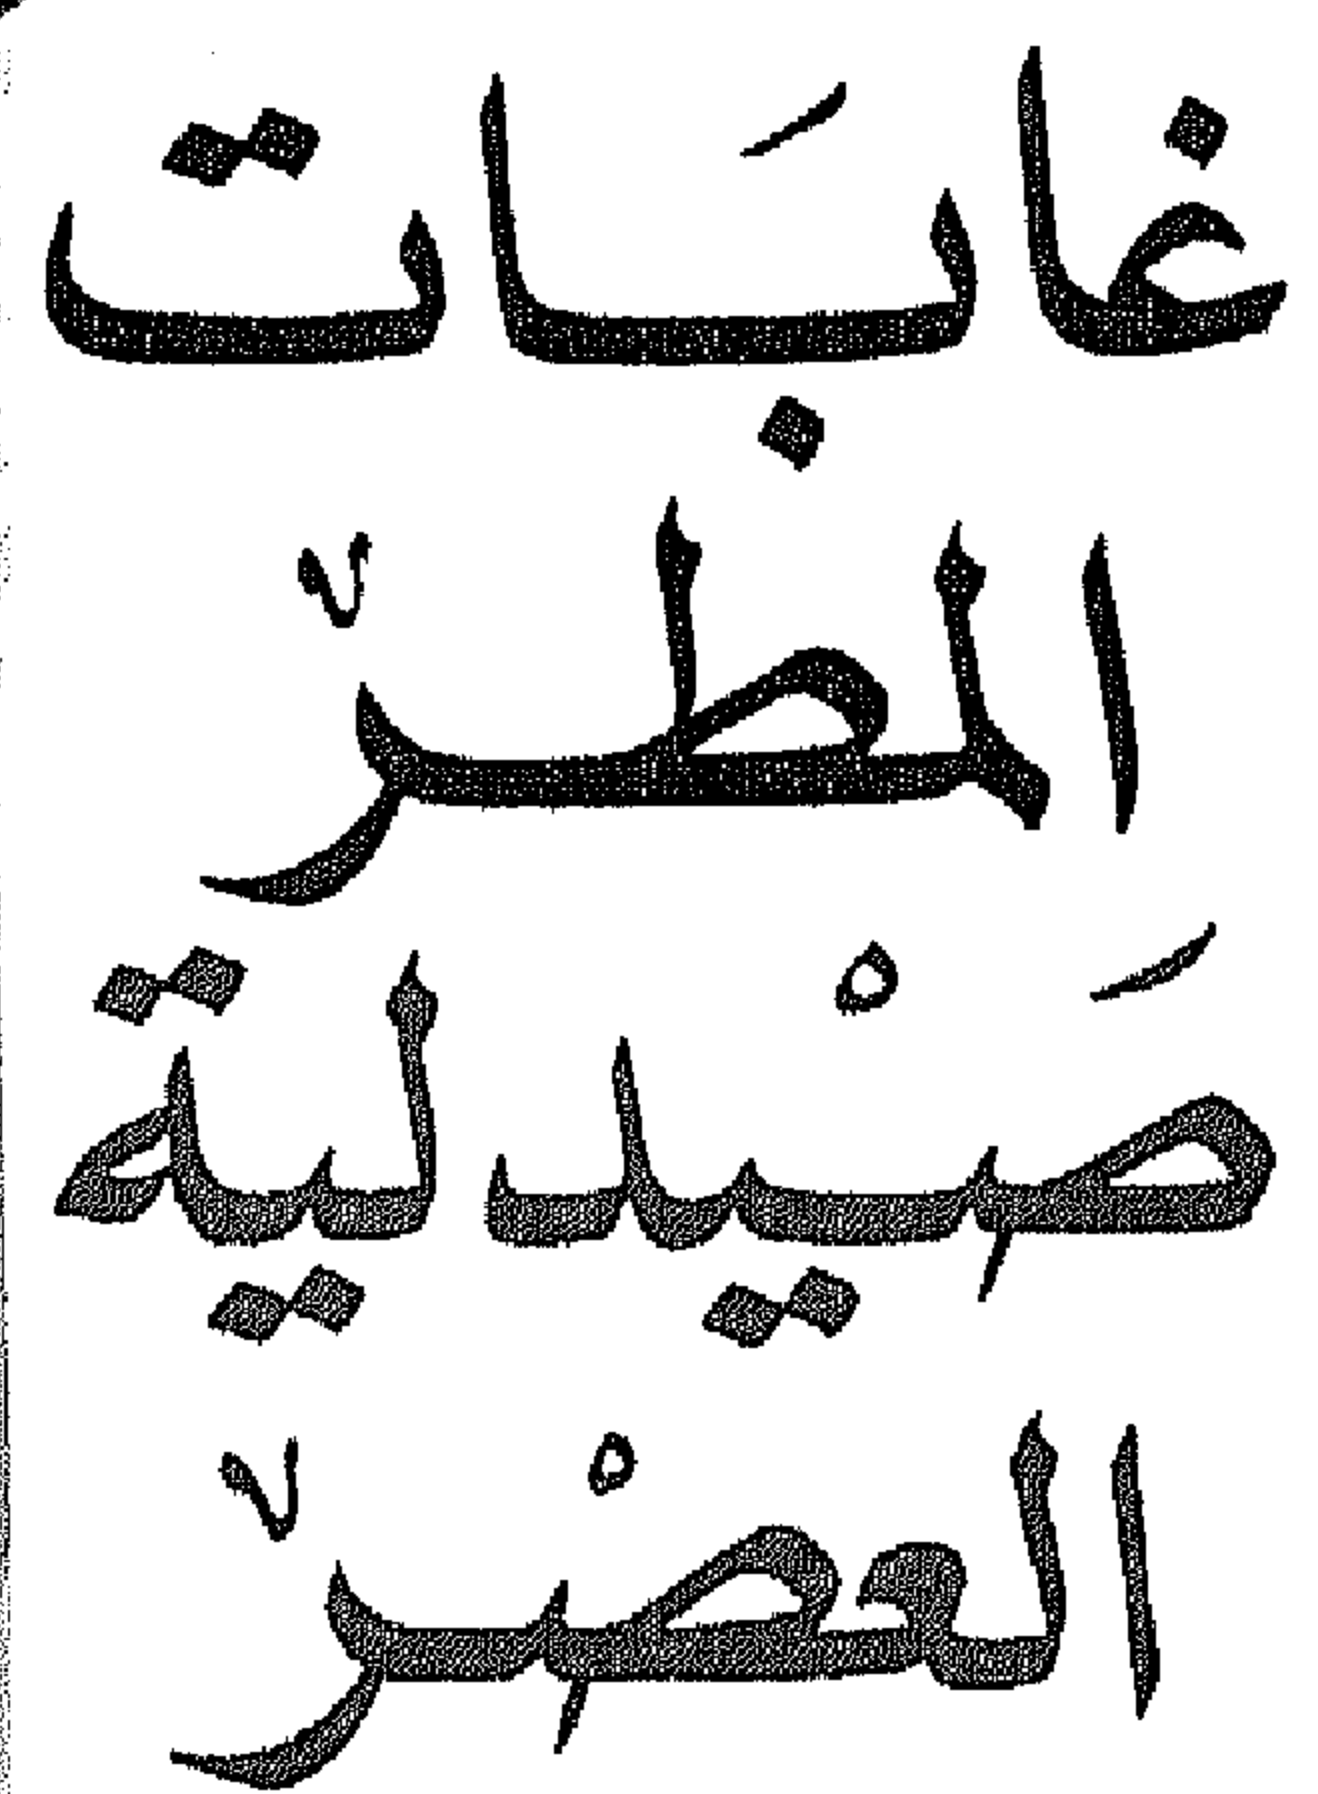 غابَات
المطر
صَيْدلية
العصْر